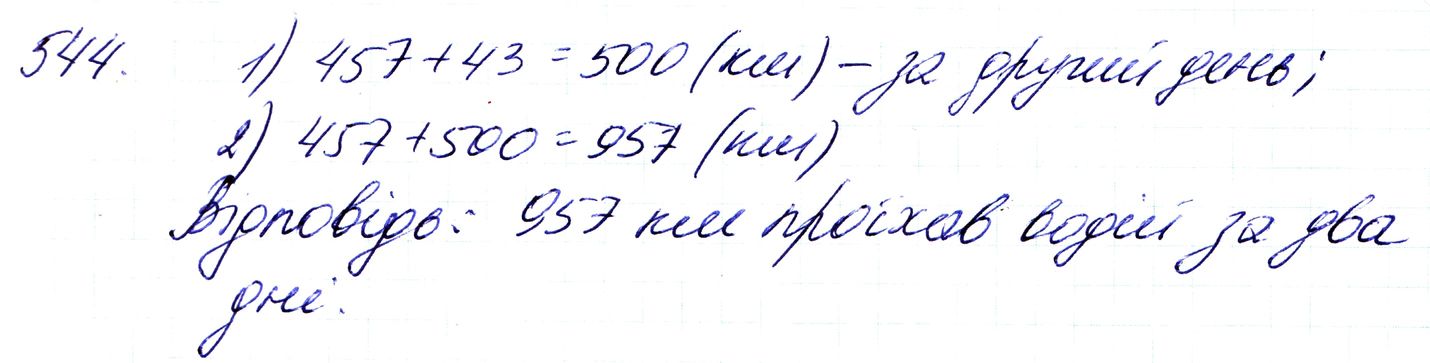 544. 1) 457+43=500 (км) – за другий день;
2) 457+500=957 (км)
Відповідь: 957 км проїхав водій за два
дні.